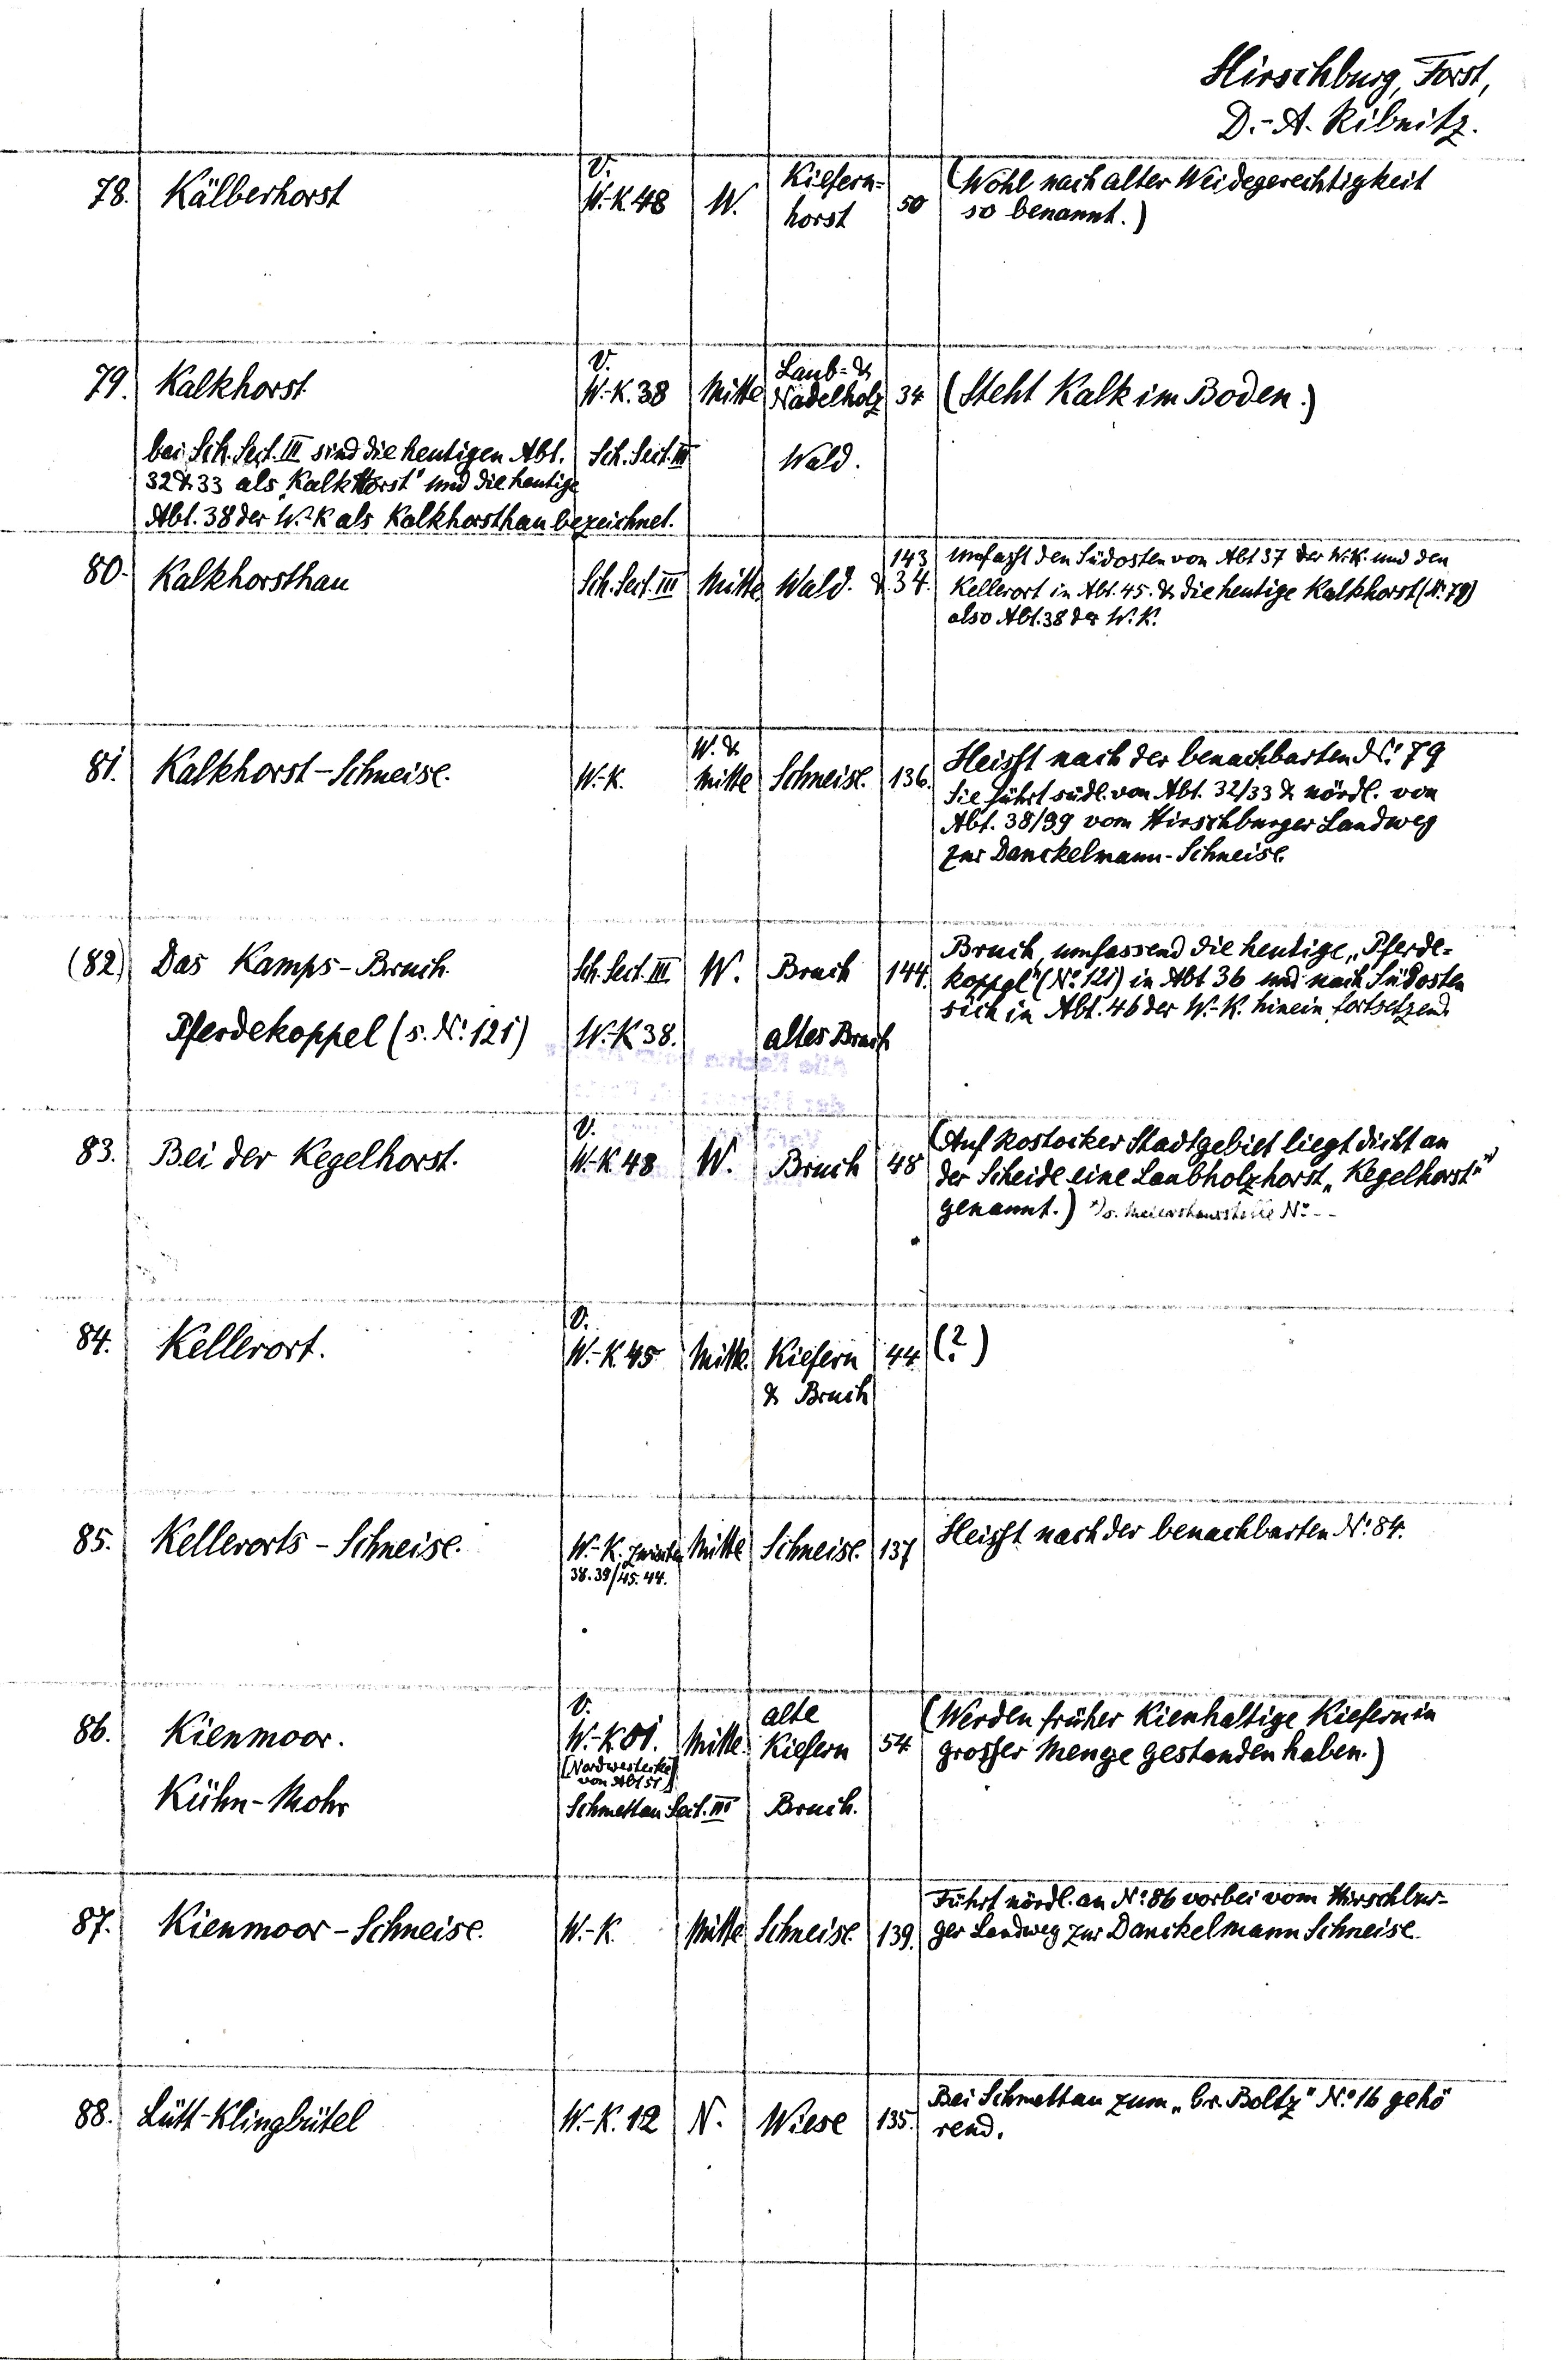 Hirschburg, Forst,
D.-A. Ribnitz.
78. Kälberhorst V. W.-K. 48 W. Kiefern-horst 50 (Wohl nach alter Weidegerechtigkeit
so benannt.)
79. Kalkhorst V. W.-K. 38 Mitte Laub- & Nadelholz 34 (Steht Kalk im Boden.)
bei Sch. Sect. III sind die heutigen Abt. Sch. Sect. III Wald.
32 & 33 als „Kalk Horst" und die heutige
Abt. 38 der W.-K als Kalkhorsthau bezeichnet.
80. Kalkhorsthau Sch. Sect. III Mitte Wald. 143 & 34. Umfaßt den Südosten von Abt 37 der W.K. und den
Kellerort in Abt. 45. & die heutige Kalkhorst (N: 79)
also Abt. 38 der W.K.
81. Kalkhorst-Schneise. W.-K. W. & Mitte Schneise. 136. Heißt nach der benachbarten N: 79
Sie führt südl. von Abt. 32/33 & nördl. von
Abt. 38/39 vom Hirschburger Landweg
zur Danckelmann-Schneise.
(82) Das Kamps-Bruch. Sch. Sect. III W. Bruch 144. Bruch, umfassend die heutige „Pferde-
koppel" (No 121) in Abt 36 und nach Südosten
sich in Abt. 46 der W.-K. hinein fortsetzend.
Pferdekoppel (s. N: 121) W.-K 38. altes Bruch
83. Bei der Kegelhorst. V. W.-K 48 W. Bruch 48 (Auf Rostocker Stadtgebiet liegt dicht an
der Scheide eine Laubholzhorst „Kegelhorst" *)
genannt.) *) s. No --
84. Kellerort. V. W.-K. 45 Mitte. Kiefern 44. (?)
& Bruch
85. Kellerorts-Schneise. W.-K. zwischen Mitte Schneise. 137 Heißt nach der benachbarten N: 84.
38.39/45.44.
86. Kienmoor. V. W.-K 01. Mitte. alte Kiefern 54 (Werden früher Kienhaltige Kiefern in
großer Menge gestanden haben.)
[Nordwestecke
von Abt 51]
Kühn-Mohr Schmettau Sect. III Bruch.
87. Kienmoor-Schneise. W.-K. Mitte Schneise 139. Führt nördl. an N: 86 vorbei vom Hirschbur-
ger Landweg zur Danckelmann Schneise.
88. Lütt-Klingbütel W.-K. 12 N. Wiese 135. Bei Schmettau zum „Gr. Boltz" No 16 gehö
rend.